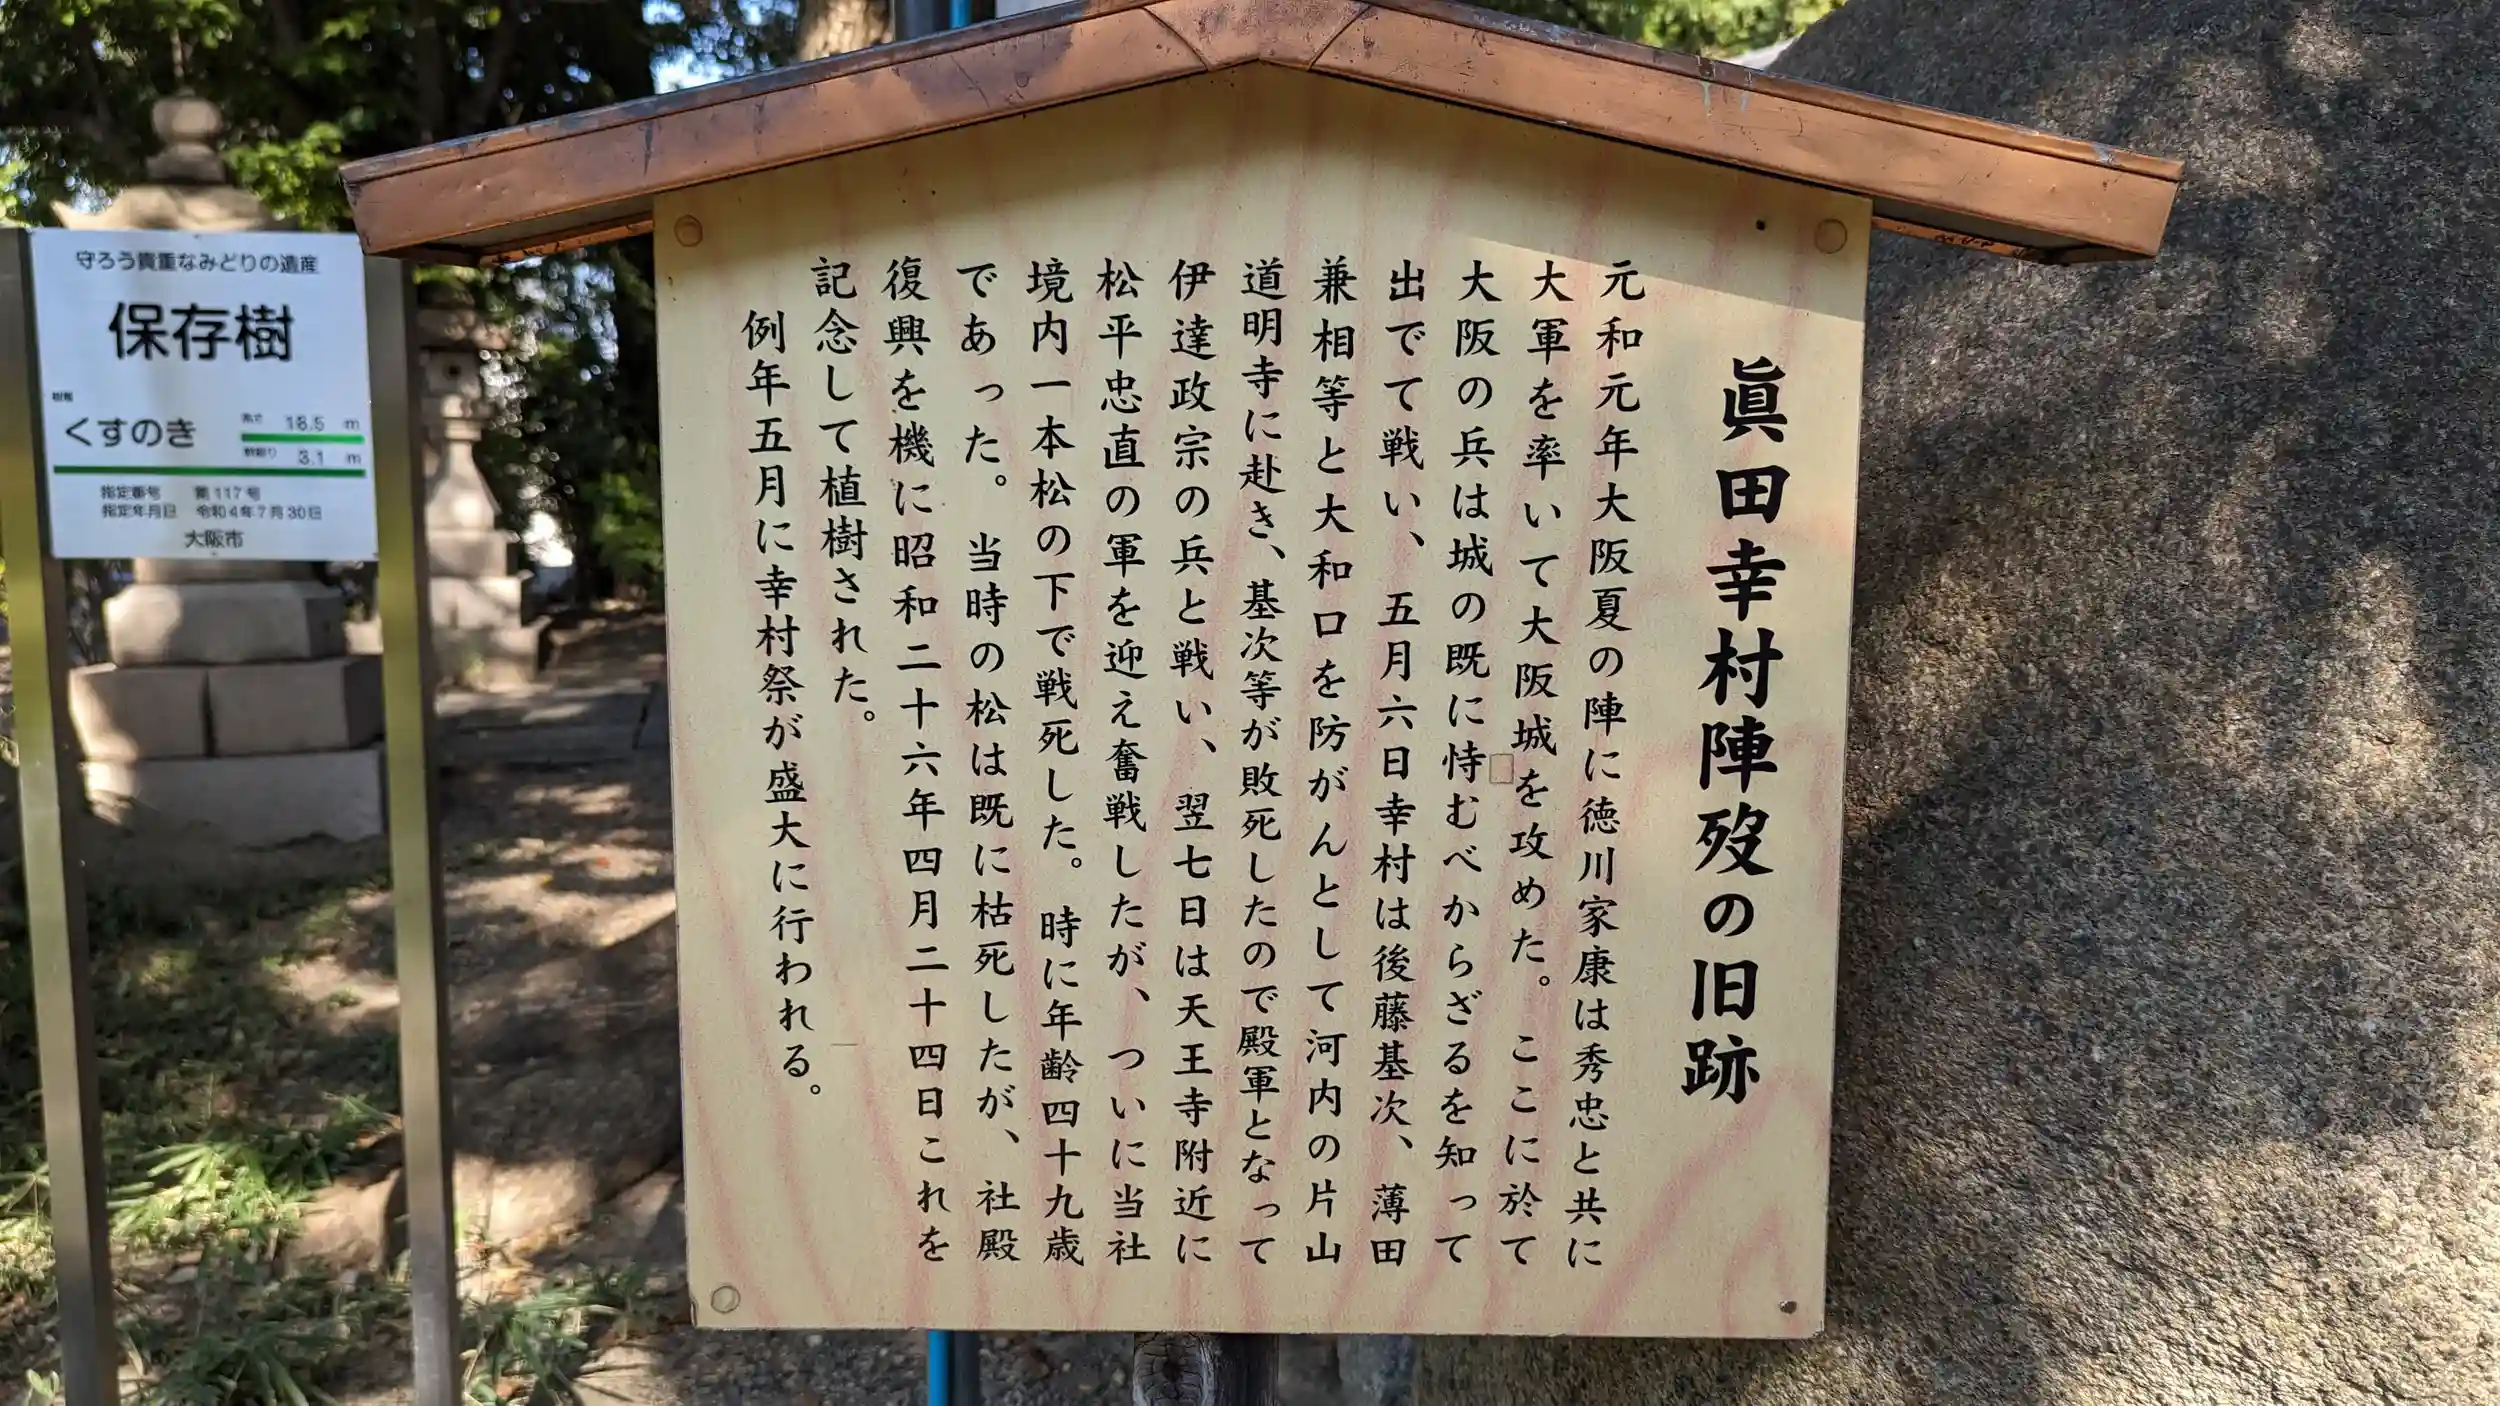 眞田幸村陣歿の旧跡
元和元年大阪夏の陣に徳川家康は秀忠と共に
大軍を率いて大阪城を攻めた。ここに於て
大阪の兵は城の既に恃むべからざるを知って
出でて戦い、五月六日幸村は後藤基次、薄田
兼相等と大和口を防がんとして河内の片山
道明寺に赴き、基次等が敗死したので殿軍となって
伊達政宗の兵と戦い、翌七日は天王寺附近に
松平忠直の軍を迎え奮戦したが、ついに当社
境内一本松の下で戦死した。時に年齢四十九歳
であった。当時の松は既に枯死したが、社殿
復興を機に昭和二十六年四月二十四日これを
記念して植樹された。
例年五月に幸村祭が盛大に行われる。
守ろう貴重なみどりの遺産
保存樹
樹種
くすのき
高さ 18.5 m
幹廻り 3.1 m
指定番号 第117号
指定年月日 令和4年7月30日
大阪市